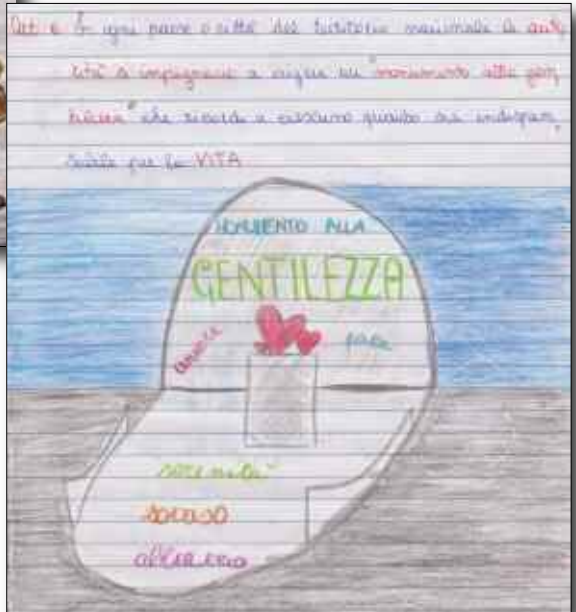 Art. 6 In ogni paese o città del territorio nazionale le auto
rità si impegnano a erigere un "monumento alla gen
tilezza" che ricordi a ciascuno quanto sia indispen
sabile per la VITA
MONUMENTO ALLA
GENTILEZZA
amore pace
serenità
sorriso
allegria